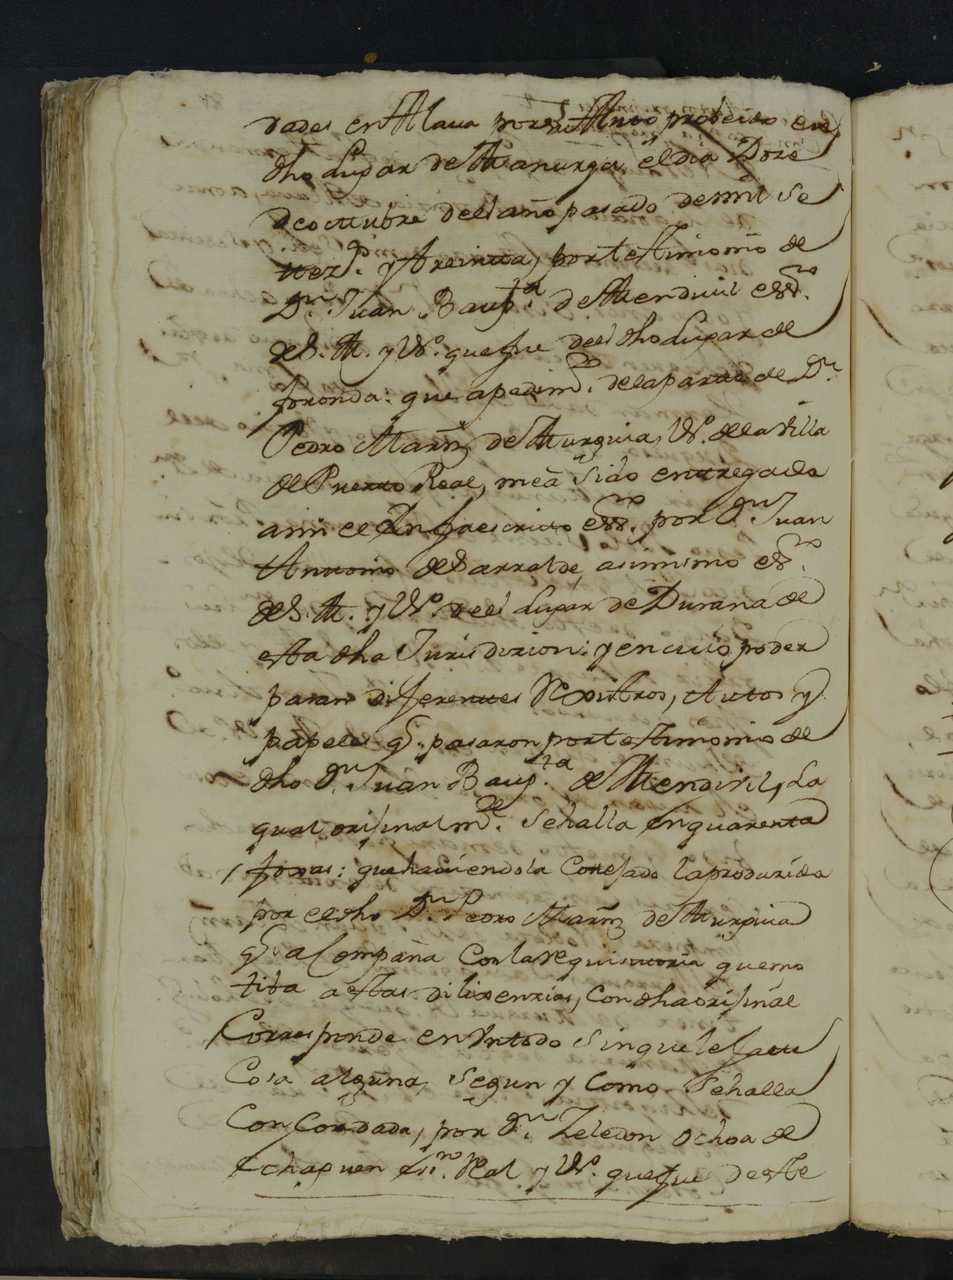 dades en Alava por su Auto probeido en
dho Lugar de Manurga el dia Doze
de octubre del año pasado de mil Se
tez.s y treinta, por testimonio de
D.n Juan Baup.ta de Mendivil ess.no
de S. M. y Vº. que fue del dho Lugar de
foronda: que a pedim.to de la parte de D.n
Pedro Marñ de Murguia, Vº. de la Villa
de Puerto Real, me a sido entregada
a mi el Infraescrito ess.no por D.n Juan
Antonio de Sarralde, asimismo es.no
de S. M. y Vº. del Lugar de Durana de
esta dha Jurisdizion: y en cuio poder
paran diferentes Rexistros, Autos y
papeles q.e pasaron por testimonio de
dho D.n Juan Baup.ta de Mendivil, La
qual orijinalm.te Sehalla en quarenta
foxas: que haviendola Cotejado la produzida
por el dho D.n Pedro Marñ de Murguia
q.e acompaña Con la requisitoria que mo
tiba a estas dilixenzias, Con dha orijinal
Corresponde en Un todo Sin que le falte
Cosa alguna, Segun y Como Sehalla
Concordada, por D.n Zeledon Ochoa de
Echaguen Es.no Real y Vº. que fue de este